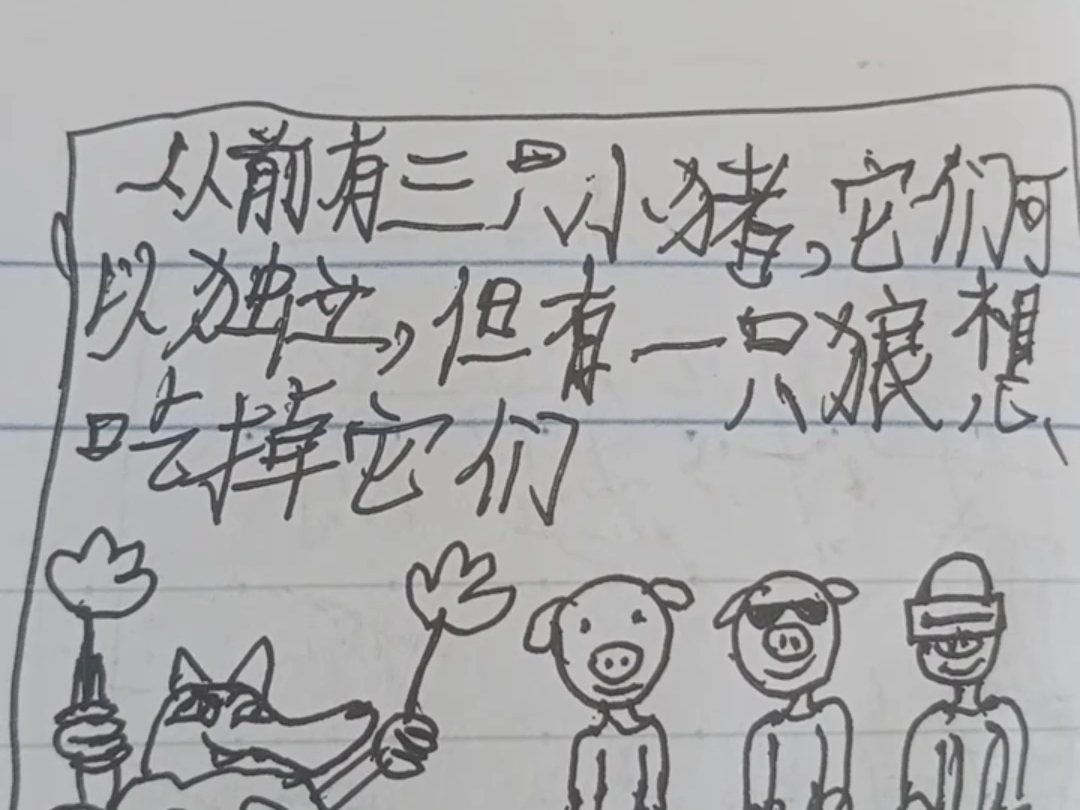 从前有三只小猪,它们可
以独立,但有一只狼想
吃掉它们